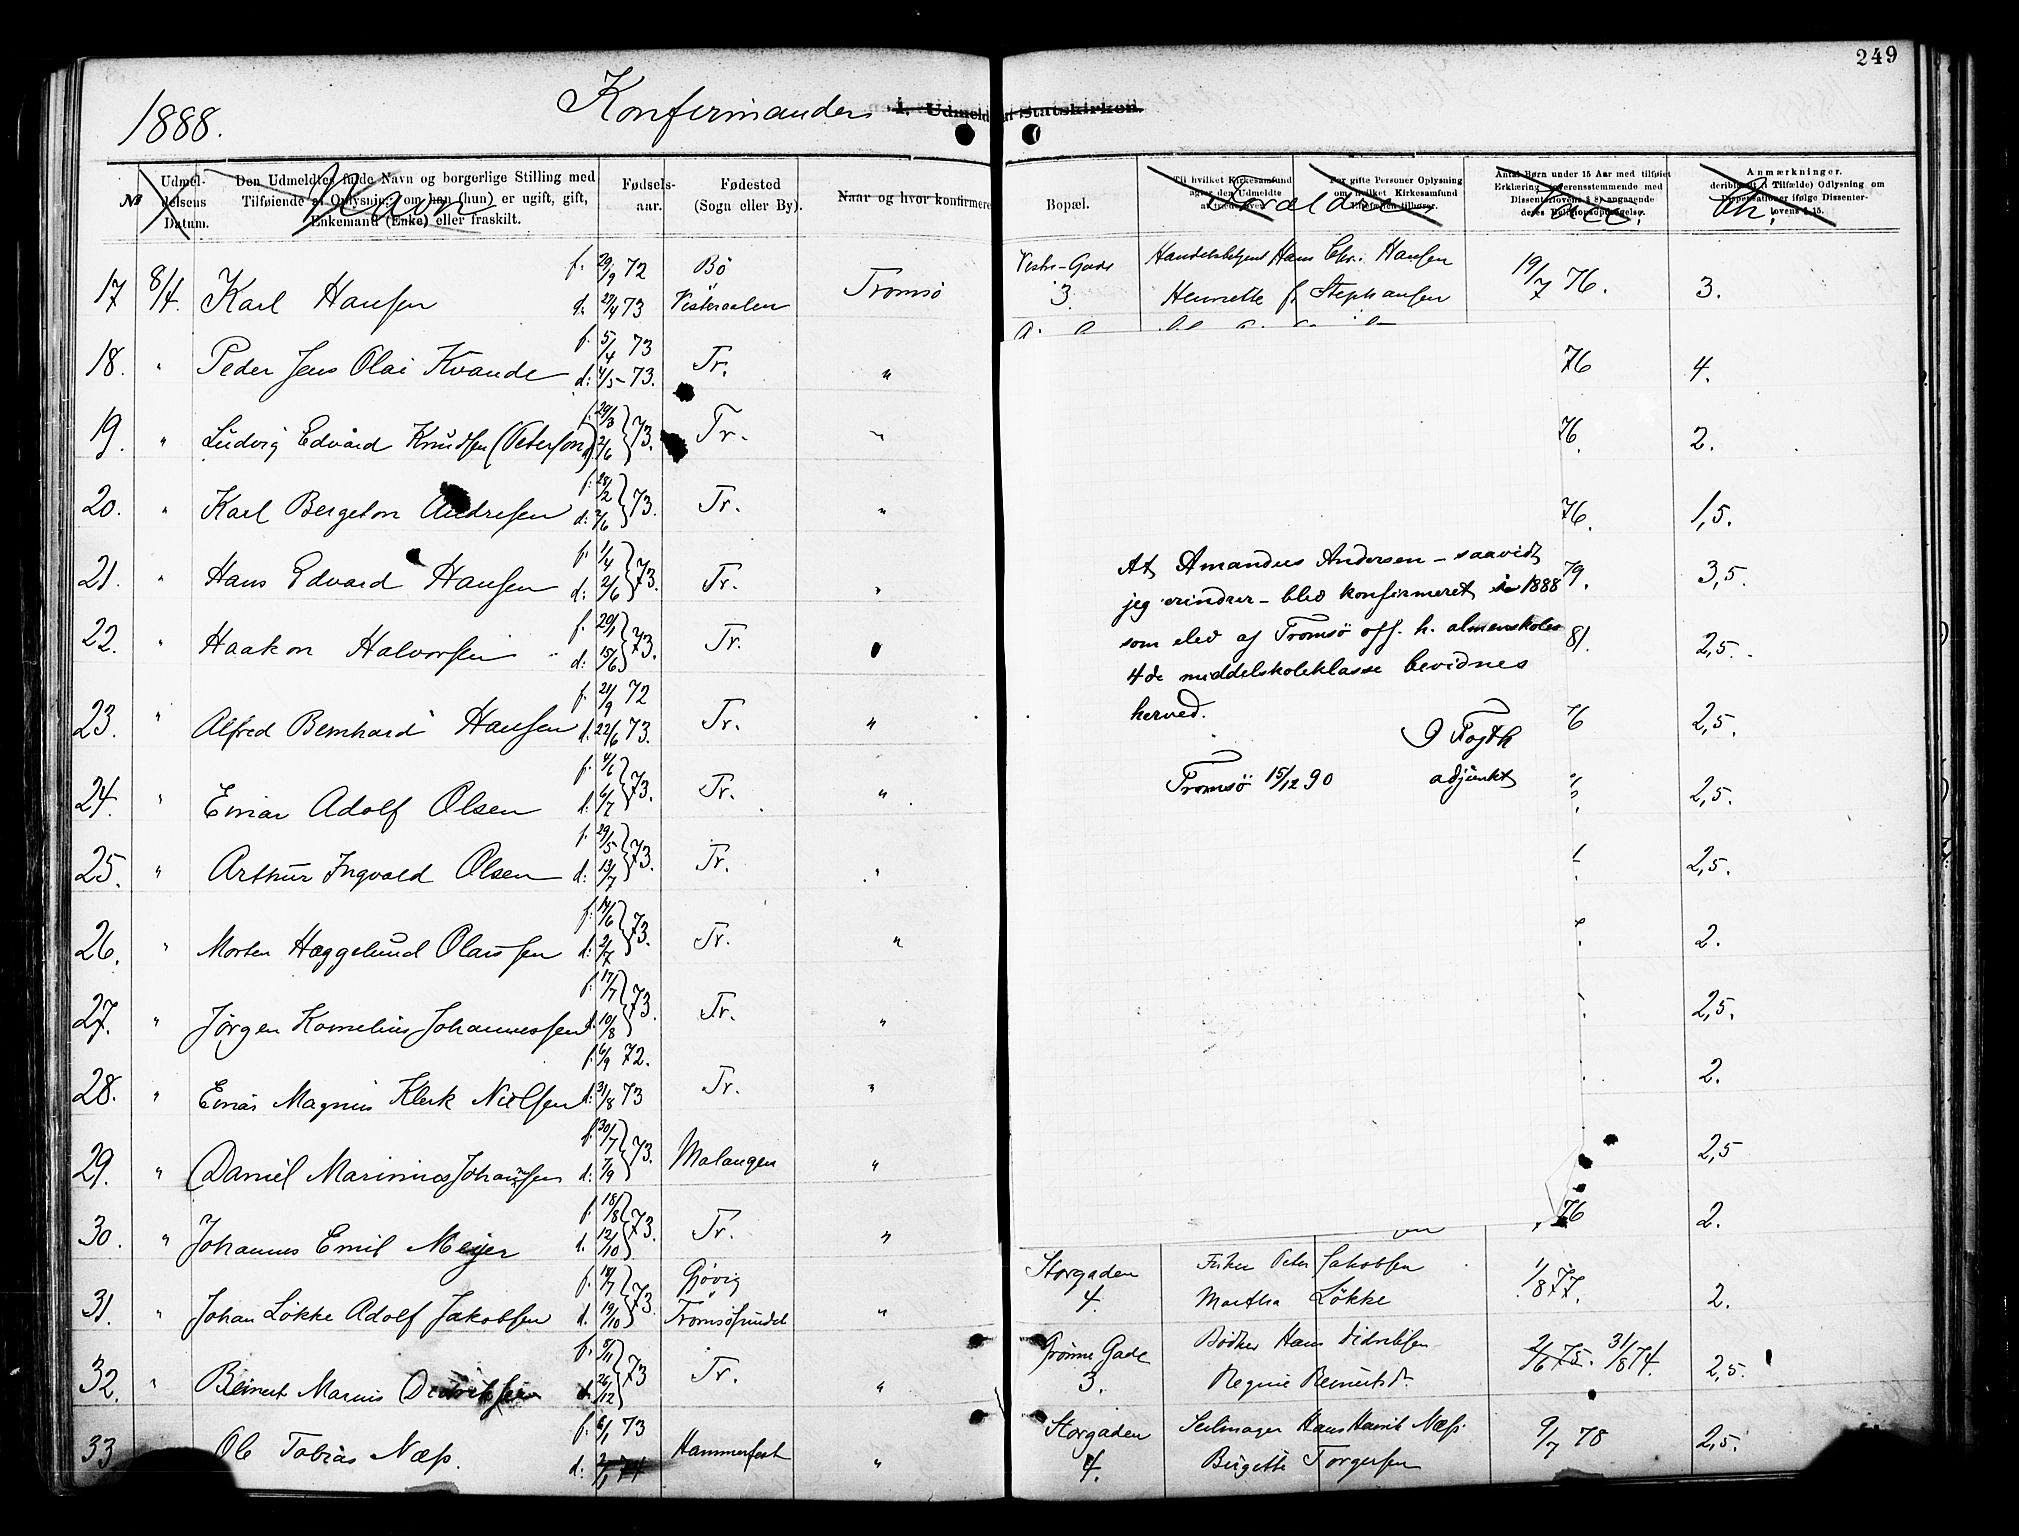 249
1888. Konfirmander i. Udmeldt af Statskirken.
№ Udmeldelsens Datum. Den Udmeldtes fulde Navn og borgerlige Stilling med Tilføiende af Oplysning om han (hun) er ugift, gift, Enkemand (Enke) eller fraskilt. Fødselsaar. Fødested (Sogn eller By). Naar og hvor konfirmeret Bopæl. Til hvilket Kirkesamfund agter den Udmeldte at træde over. For gifte Personer Oplysning om hvilket Kirkesamfund Ægtefællen tilhører. Antal Børn under 15 Aar med tilføiet Erklæring overensstemmende med Dissenterlovens § 8 angaaende deres Religionsopdragelse. Anmærkninger. deriblandt (i Tilfælde) Odlysning om Dispensationer ifølge Dissenterlovens § 15.
Navn Forældre Vacc. Ch.
17 8/4. Karl Hansen f. 29/9 72 d. 27/4 73 Bö Vesteraalen Tromsö Vestre-Gade 3. Handelsbetjent Hans Chr. Hansen Henriette f. Stephansen 19/7 76. 3.
18. " Peder Jens Olai Kvande f. 5/4 73 d: 4/5-73. Tr. " 76 4.
19. " Ludvig Edvard Knudsen (Peterson) f. 29/3 d. 2/6 73. Tr. " 76. 2.
20. " Karl Bergeton Andresen f: 28/2 d: 2/6 73. Tr. " 76. 1,5.
21. " Hans Edvard Hansen f. 1/4 d: 2/6 73. Tr. " 79. 3,5.
22. " Haakon Halvorsen f. 29/1 d: 15/6 73. Tr. " 81. 2,5.
23. " Alfred Bernhard Hansen f. 21/9 72 d. 22/6 73. Tr. " 76 2,5.
24. " Einar Adolf Olsen f. 4/6 d. 6/7 73. Tr. " 2,5.
25. " Arthur Ingvald Olsen f. 29/5 d: 13/7 73. Tr. " 2,5.
26. " Morten Hæggelund Olaussen f. 14/6 d: 2/7 73. Tr. " 2.
27. " Jörgen Kornelius Johannessen f. 17/7 d. 10/8 73. Tr. " 2,5.
28. " Einar Magnus Klerk Nielsen f. 6/9 72. d: 31/8 73 Tr. " 2.
29. " Daniel Marinius Johannsen f. 30/7 d: 7/9 73. Malangen " 2,5
30. " Johannes Emil Meyer f. 18/8 d. 12/10 73. Tr. " 76 2.
31. " Johan Lökke Adolf Jakobsen f. 18/7 d. 19/10 73. Gjövig Tromsösundet " Storgaden 4. Fisker Peter Jakobsen Martha Lökke 1/8 77. 2.
32. " Beinert Marius Didriksen f. 5/11 d. 26/12 73 Tr. " Grönne Gade 3. Bödker Hans Didriksen Regine Reinertsd. 2/6 75. 31/8 74. 2,5.
33 Ole Tobias Næss. f. 6/1 73 d: 2/1 74 Hammerfest " Storgaden 4. Seilmager Hans Henrik Næss Birgitte Torgersen 9/7 78 2,5.
At Amandus Andersen – saavidt
jeg erindrer – blev konfirmeret i 1888
som elev af Tromsö off. h. almenskoles
4de middelskoleklasse bevidnes
herved.
O Fogth
Tromsö 15/12 90 adjunkt